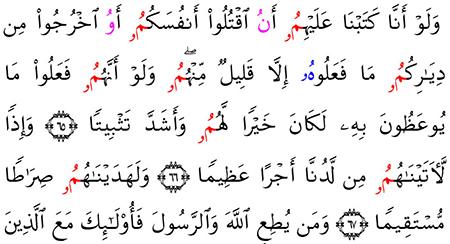 وَلَوۡ أَنَّا كَتَبۡنَا عَلَيۡهِمُۥ أَنُ ٱقۡتُلُوٓاْ أَنفُسَكُمُۥ أَوُ ٱخۡرُجُواْ مِن
دِيَٰرِكُمُۥ مَا فَعَلُوهُۥ إِلَّا قَلِيلٞ مِّنۡهُمُۥۖ وَلَوۡ أَنَّهُمُۥ فَعَلُواْ مَا
يُوعَظُونَ بِهِۦ لَكَانَ خَيۡرٗا لَّهُمُۥ وَأَشَدَّ تَثۡبِيتٗا ٦٥ وَإِذٗا
لَّأٓتَيۡنَٰهُمُۥ مِن لَّدُنَّآ أَجۡرًا عَظِيمٗا ٦٦ وَلَهَدَيۡنَٰهُمُۥ صِرَٰطٗا
مُّسۡتَقِيمٗا ٦٧ وَمَن يُطِعِ ٱللَّهَ وَٱلرَّسُولَ فَأُوْلَٰٓئِكَ مَعَ ٱلَّذِينَ